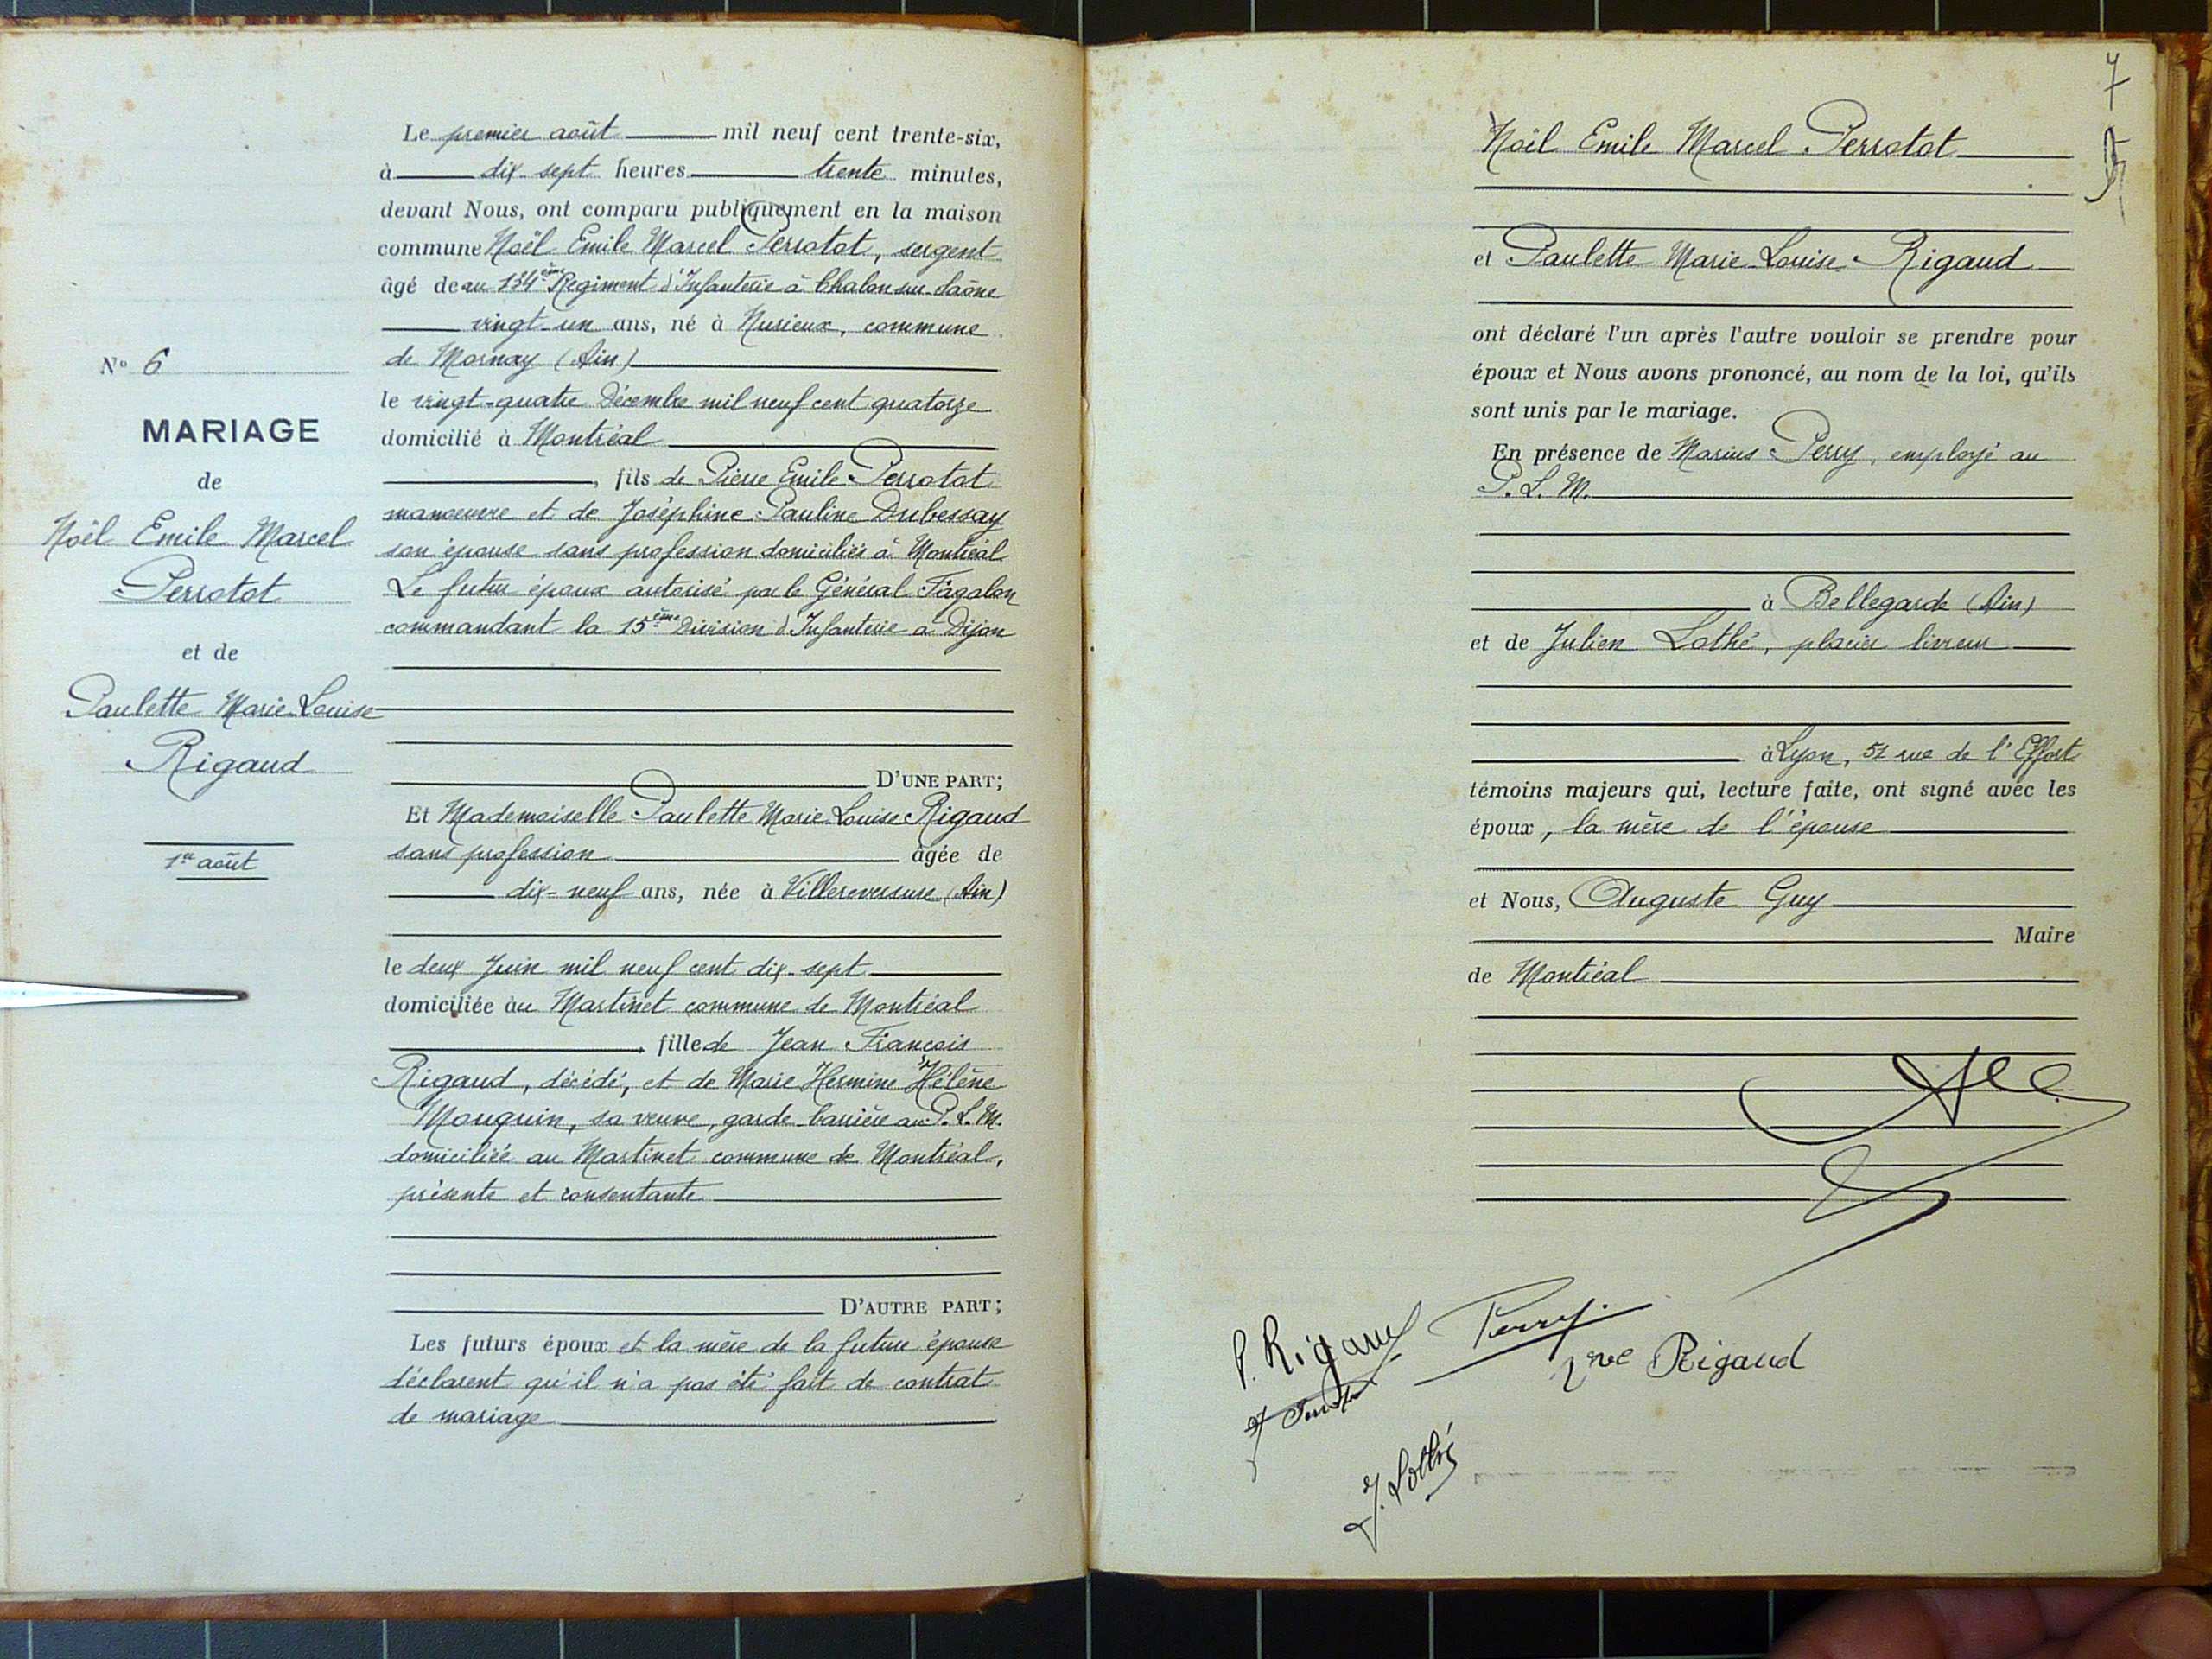 N° 6
MARIAGE
de
Noël Emile Marcel
Perrotot
et de
Paulette Marie-Louise
Rigaud
1er août
Le premier août mil neuf cent trente-six,
à dix-sept heures trente minutes,
devant Nous, ont comparu publiquement en la maison
commune Noël Emile Marcel Perrotot, sergent
âgé de au 134ème Regiment d'Infanterie à Chalon-sur-Saône
vingt-un ans, né à Nurieux, commune
de Mornay (Ain)
le vingt-quatre Décembre mil neuf cent quatorze
domicilié à Montréal
, fils de Pierre Emile Perrotot
manoeuvre et de Joséphine Pauline Dubessay
son épouse sans profession domiciliés à Montréal
Le futur époux autorisé par le Général Fagalon
commandant la 15ème Division d'Infanterie à Dijon
D'UNE PART;
Et Mademoiselle Paulette Marie-Louise Rigaud
sans profession âgée de
dix-neuf ans, née à Villereversure (Ain)
le deux Juin mil neuf cent dix-sept
domiciliée au Martinet commune de Montréal
, fille de Jean François
Rigaud, décédé, et de Marie Hermine Hélène
Mouquin, sa veuve, garde-barrière au P.L.M.
domiciliée au Martinet commune de Montréal,
présente et consentante
D'AUTRE PART;
Les futurs époux et la mère de la future épouse
déclarent qu'il n'a pas été fait de contrat
de mariage
7
Noël Emile Marcel Perrotot
et Paulette Marie-Louise Rigaud
ont déclaré l'un après l'autre vouloir se prendre pour
époux et Nous avons prononcé, au nom de la loi, qu'ils
sont unis par le mariage.
En présence de Marius Perry, employé au
P.L.M.
à Bellegarde (Ain)
et de Julien Lothé, placier livreur
à Lyon, 51 rue de l'Effort
témoins majeurs qui, lecture faite, ont signé avec les
époux, la mère de l'épouse
et Nous, Auguste Guy
Maire
de Montréal
P. Rigaud
Perry
Vve Rigaud
J. Lothé